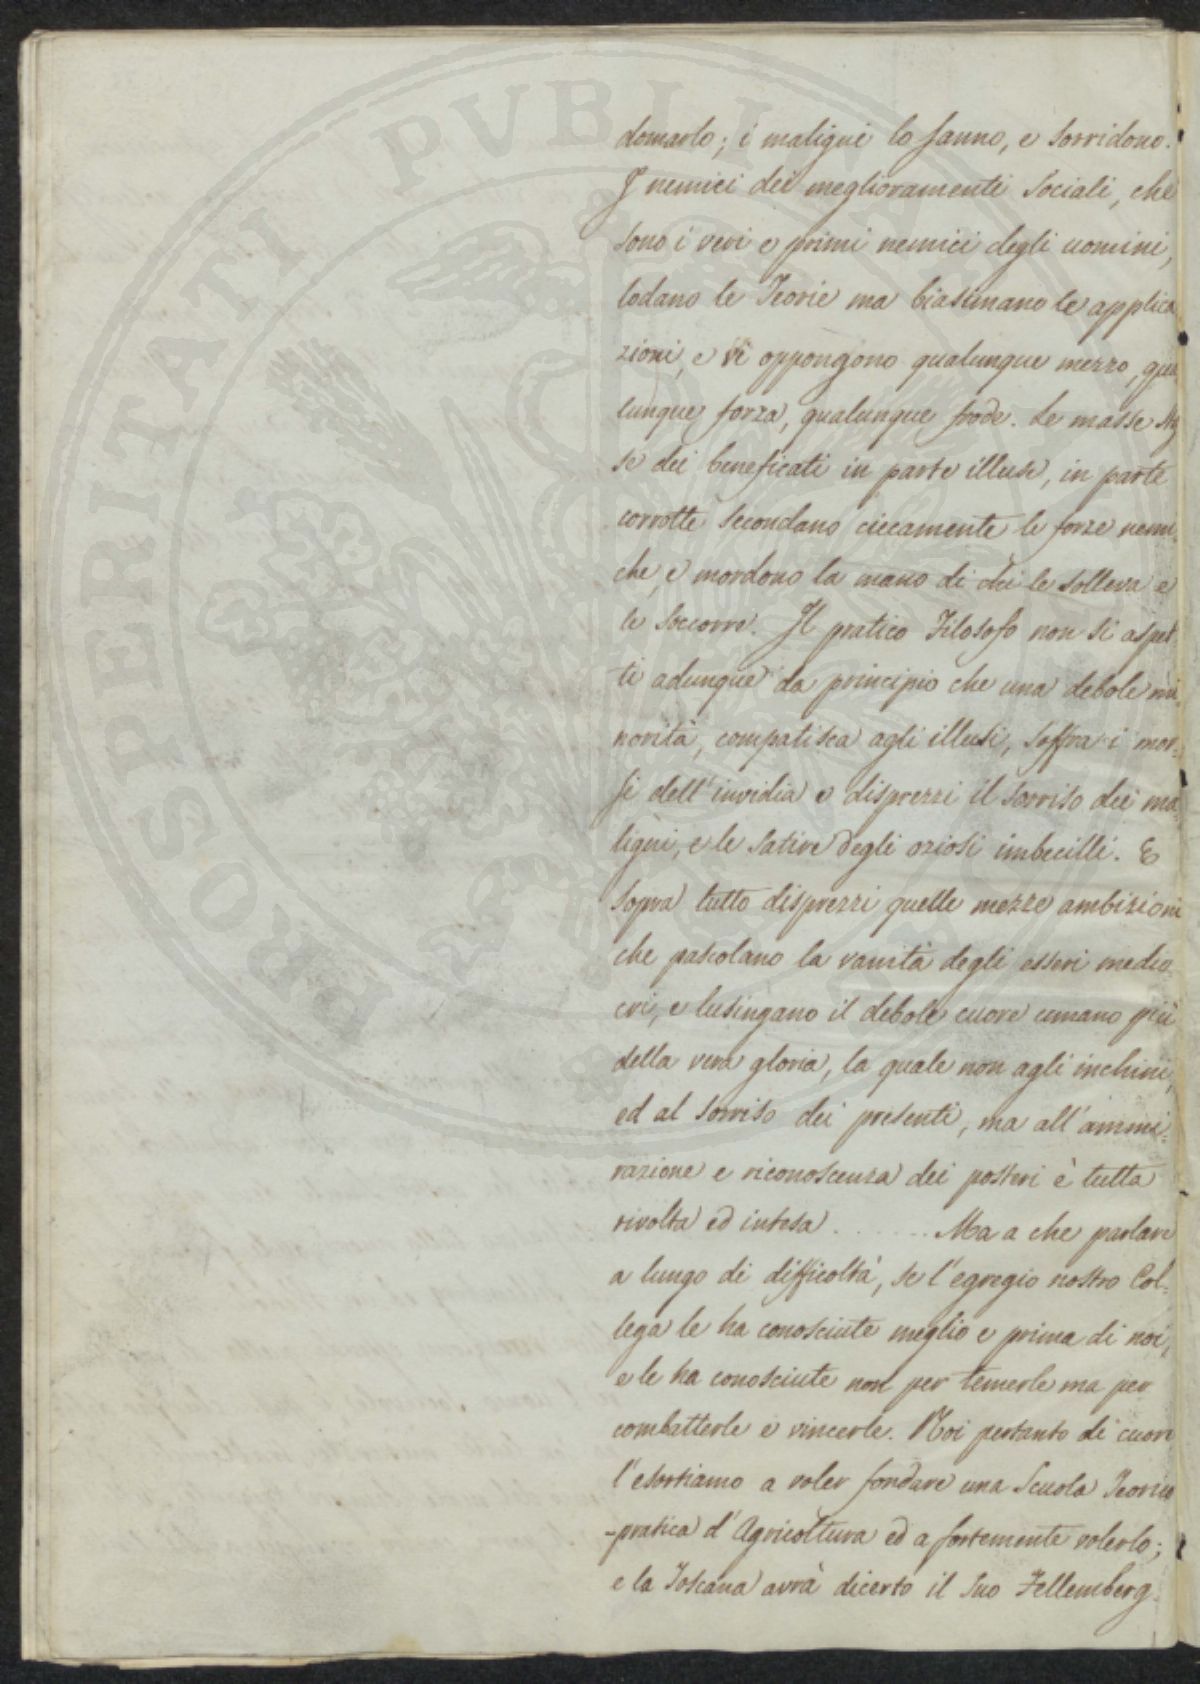 domarlo; i maligni lo fanno, e sorridono.
I nemici dei meglioramenti sociali, che
sono i veri e primi nemici degli uomini,
lodano le Teorie ma biasimano le applica
zioni, e vi oppongono qualunque mezzo, qua
lunque forza, qualunque frode. Le masse stes
se dei beneficati in parte illuse, in parte
corrotte secondano ciecamente le forze nemi¬
che, e mordono la mano di chi le solleva e
le soccorre. Il pratico Filosofo non si aspet
ti adunque da principio che una debole mi¬
norità, compatisca agli illusi, soffra i mor¬
si dell'invidia e disprezzi il sorriso dei ma
ligni, e le satire degli oziosi imbecilli. E
sopra tutto disprezzi quelle mezze ambizioni
che pascolano la vanità degli esseri medio
cri, e lusingano il debole cuore umano più
della vera gloria, la quale non agli inchini,
ed al sorriso dei presenti, ma all'ammi=
razione e riconoscenza dei posteri è tutta
rivolta ed intesa ........ Ma a che parlare
a lungo di difficoltà, se l'egregio nostro Col=
lega le ha conosciute meglio e prima di noi,
e le ha conosciute non per temerle ma per
combatterle e vincerle. Noi pertanto di cuore
l'esortiamo a voler fondare una Scuola Teorico
-pratica d'Agricoltura ed a fortemente volerlo;
e la Toscana avrà dicerto il suo Fellemberg.
PROSPERITATI